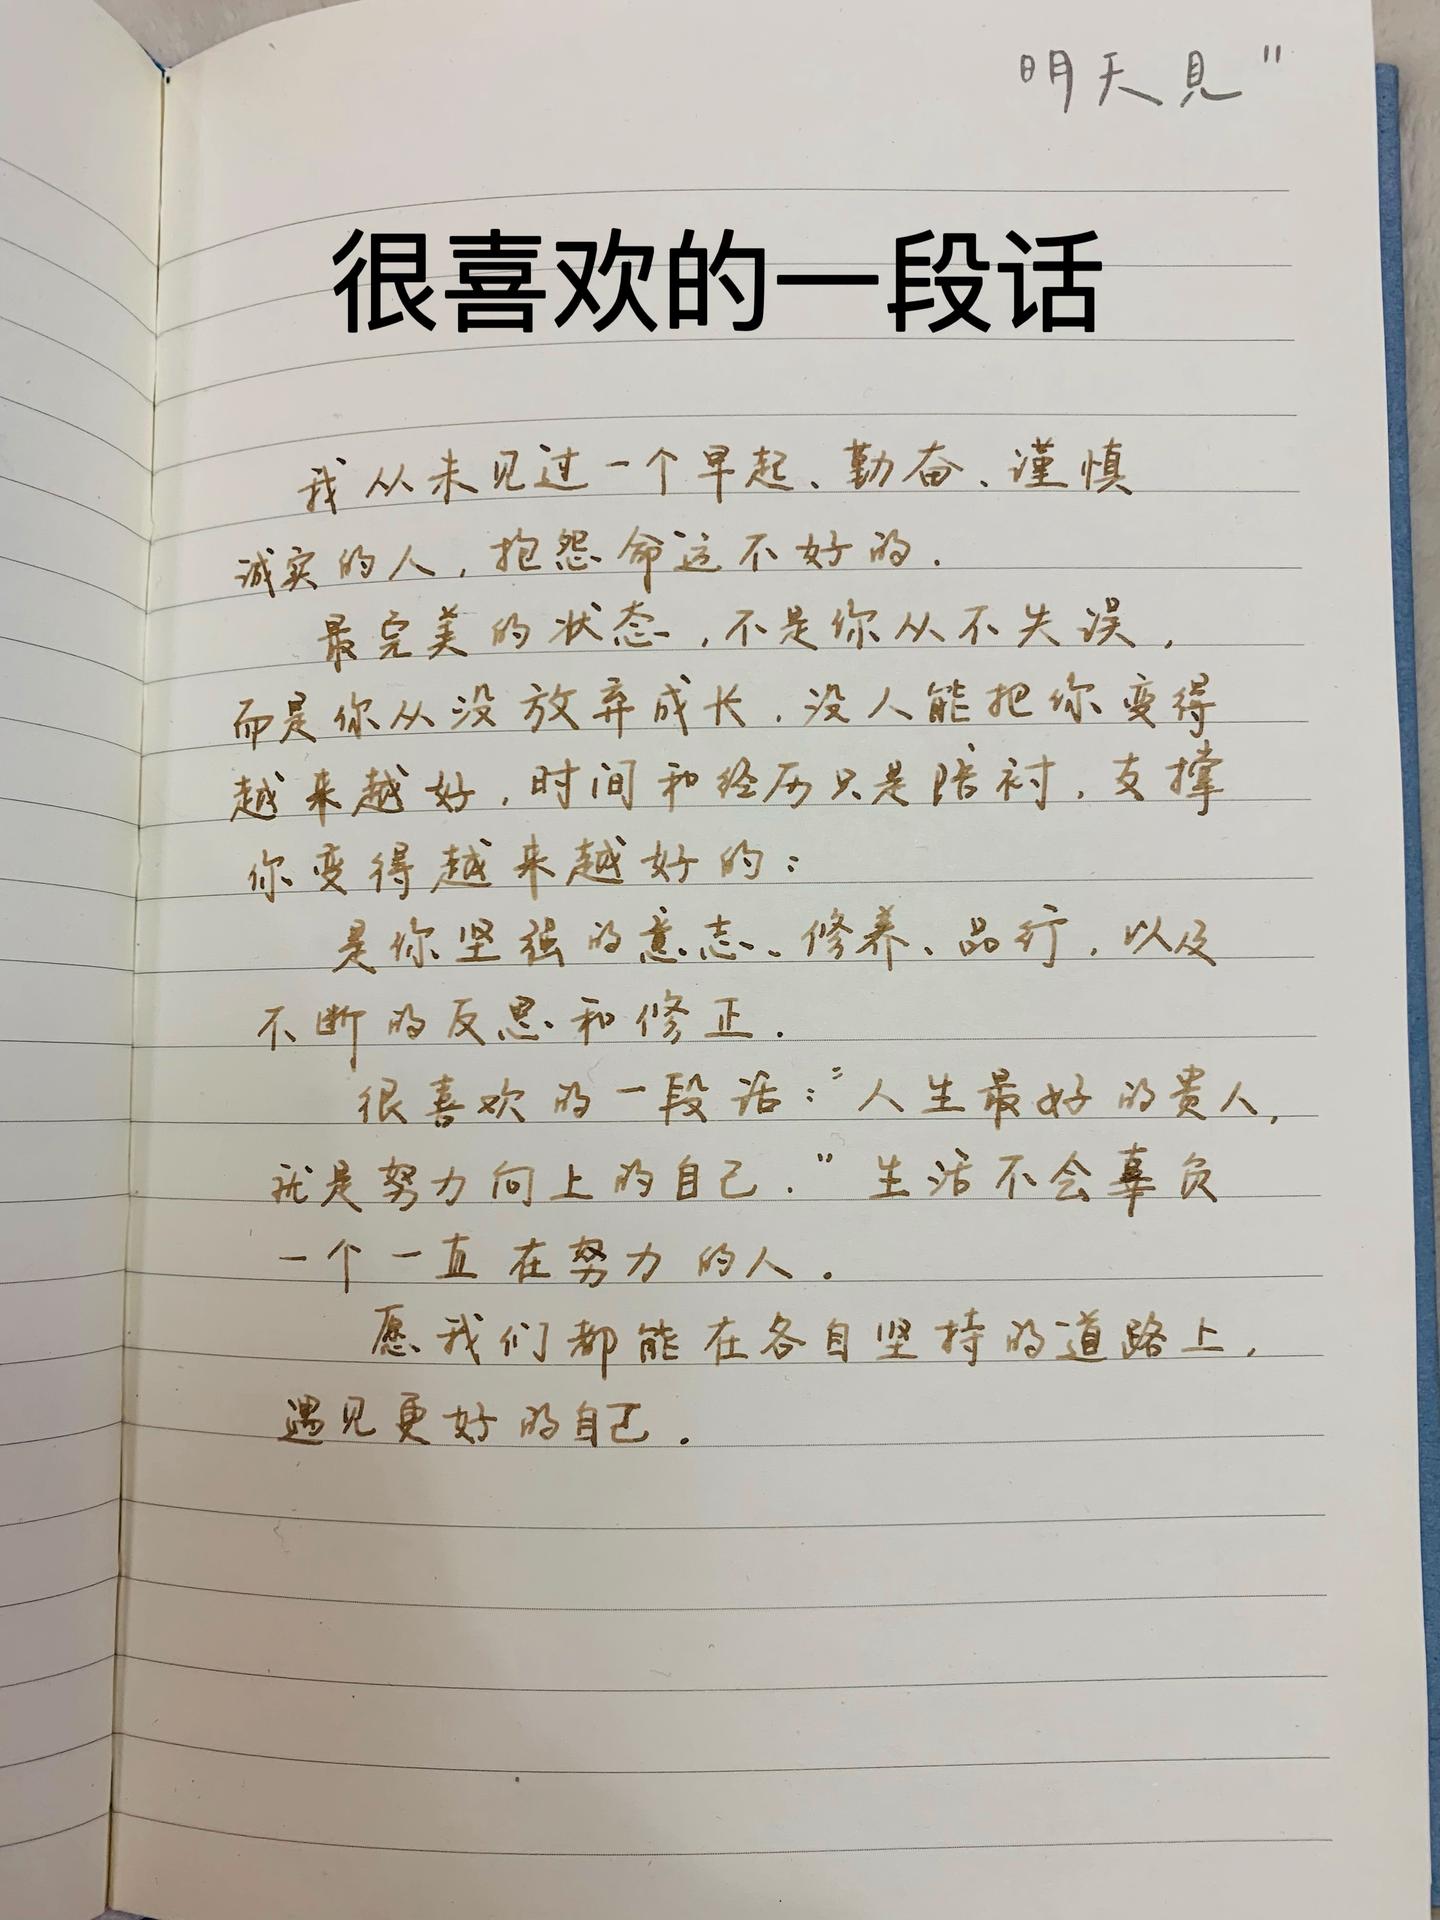 明天见"
很喜欢的一段话
我从未见过一个早起、勤奋、谨慎
诚实的人，抱怨命运不好的.
最完美的状态，不是你从不失误，
而是你从没放弃成长，没人能把你变得
越来越好，时间和经历只是陪衬，支撑
你变得越来越好的：
是你坚强的意志、修养、品行，以及
不断的反思和修正.
很喜欢的一段话："人生最好的贵人，
就是努力向上的自己."生活不会辜负
一个一直在努力的人.
愿我们都能在各自坚持的道路上，
遇见更好的自己.